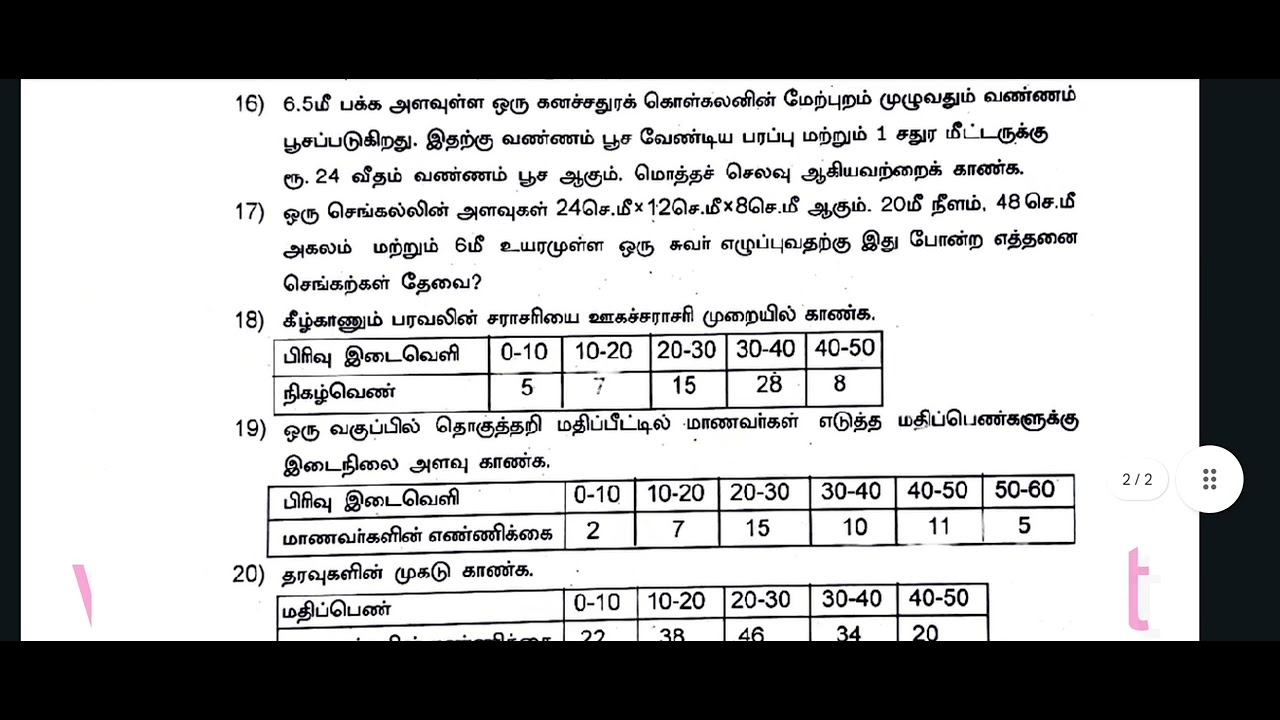 16) 6.5மீ பக்க அளவுள்ள ஒரு கனச்சதுரக் கொள்கலனின் மேற்புறம் முழுவதும் வண்ணம்
பூசப்படுகிறது. இதற்கு வண்ணம் பூச வேண்டிய பரப்பு மற்றும் 1 சதுர மீட்டருக்கு
ரூ. 24 வீதம் வண்ணம் பூச ஆகும். மொத்தச் செலவு ஆகியவற்றைக் காண்க.
17) ஒரு செங்கல்லின் அளவுகள் 24செ.மீ×12செ.மீ×8செ.மீ ஆகும். 20மீ நீளம், 48 செ.மீ
அகலம் மற்றும் 6மீ உயரமுள்ள ஒரு சுவர் எழுப்புவதற்கு இது போன்ற எத்தனை
செங்கற்கள் தேவை?
18) கீழ்காணும் பரவலின் சராசரியை ஊகச்சராசரி முறையில் காண்க.
பிரிவு இடைவெளி 0-10 10-20 20-30 30-40 40-50
நிகழ்வெண் 5 7 15 28 8
19) ஒரு வகுப்பில் தொகுத்தறி மதிப்பீட்டில் மாணவர்கள் எடுத்த மதிப்பெண்களுக்கு
இடைநிலை அளவு காண்க.
பிரிவு இடைவெளி 0-10 10-20 20-30 30-40 40-50 50-60
மாணவர்களின் எண்ணிக்கை 2 7 15 10 11 5
20) தரவுகளின் முகடு காண்க.
மதிப்பெண் 0-10 10-20 20-30 30-40 40-50
22 38 46 34 20
2 / 2
t